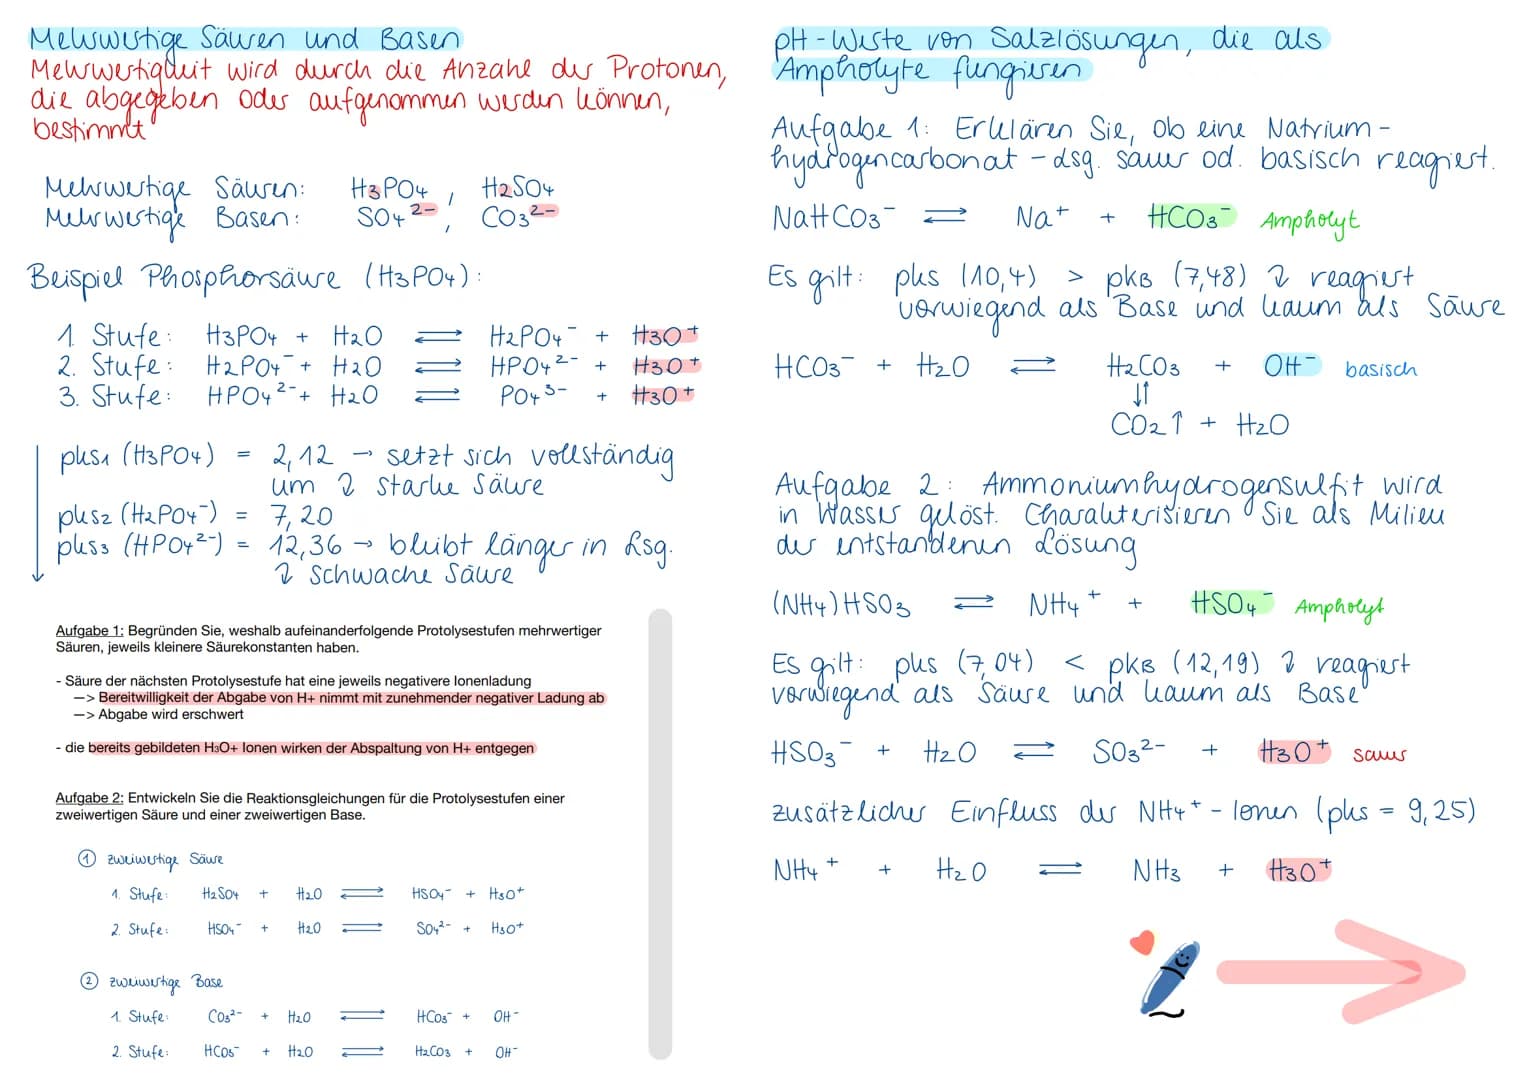 Mehrwertige Säuren und Basen
Mehrwertigkeit wird durch die Anzahl der Protonen,
die abgegeben oder aufgenommen werden können,
bestimmt
Mehrwertige Säuren: H3PO4 , H2SO4
Mehrwertige Basen: SO4 2- , CO3 2-
Beispiel Phosphorsäure (H3PO4):
1. Stufe: H3PO4 + H2O ⇌ H2PO4⁻ + H3O⁺
2. Stufe: H2PO4⁻ + H2O ⇌ HPO4²⁻ + H3O⁺
3. Stufe: HPO4²⁻ + H2O ⇌ PO4³⁻ + H3O⁺
pks1 (H3PO4) = 2,12 → setzt sich vollständig
um ↷ starke Säure
pks2 (H2PO4⁻) = 7,20
pks3 (HPO4²⁻) = 12,36 → bleibt länger in Lsg.
↷ schwache Säure
Aufgabe 1: Begründen Sie, weshalb aufeinanderfolgende Protolysestufen mehrwertiger
Säuren, jeweils kleinere Säurekonstanten haben.
- Säure der nächsten Protolysestufe hat eine jeweils negativere Ionenladung
—> Bereitwilligkeit der Abgabe von H+ nimmt mit zunehmender negativer Ladung ab
—> Abgabe wird erschwert
- die bereits gebildeten H3O+ Ionen wirken der Abspaltung von H+ entgegen
Aufgabe 2: Entwickeln Sie die Reaktionsgleichungen für die Protolysestufen einer
zweiwertigen Säure und einer zweiwertigen Base.
① zweiwertige Säure
1. Stufe: H2SO4 + H2O ⇌ HSO4⁻ + H3O⁺
2. Stufe: HSO4⁻ + H2O ⇌ SO4²⁻ + H3O⁺
② zweiwertige Base
1. Stufe: CO3²⁻ + H2O ⇌ HCO3⁻ + OH⁻
2. Stufe: HCO3⁻ + H2O ⇌ H2CO3 + OH⁻
pH-Werte von Salzlösungen, die als
Ampholyte fungieren
Aufgabe 1: Erklären Sie, ob eine Natrium-
hydrogencarbonat-Lsg. sauer od. basisch reagiert.
NaHCO3⁻ ⇌ Na⁺ + HCO3⁻ Ampholyt
Es gilt: pks (10,4) > pkB (7,48) ↷ reagiert
vorwiegend als Base und kaum als Säure
HCO3⁻ + H2O ⇌ H2CO3 + OH⁻ basisch
⇅
CO2↑ + H2O
Aufgabe 2: Ammoniumhydrogensulfit wird
in Wasser gelöst. Charakterisieren Sie als Milieu
der entstandenen Lösung
(NH4)HSO3 ⇌ NH4⁺ + HSO4⁻ Ampholyt
Es gilt: pks (7,04) < pkB (12,19) ↷ reagiert
vorwiegend als Säure und kaum als Base
HSO3⁻ + H2O ⇌ SO3²⁻ + H3O⁺ sauer
zusätzlicher Einfluss der NH4⁺-Ionen (pks = 9,25)
NH4⁺ + H2O ⇌ NH3 + H3O⁺